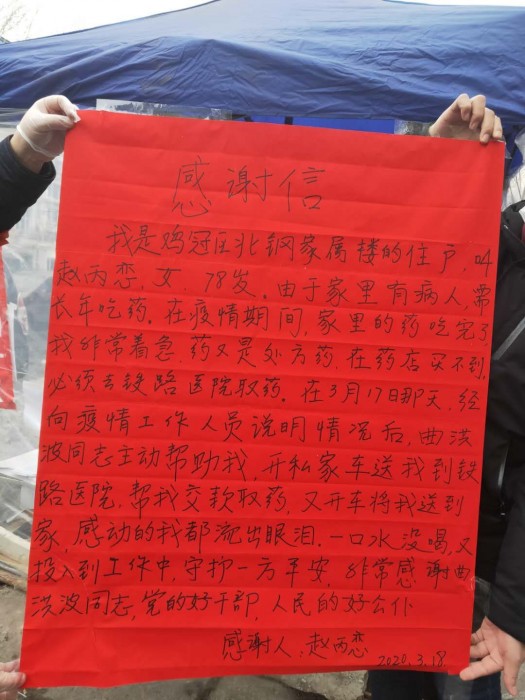 感谢信
我是鸡冠区北钢家属楼的住户，叫
赵丙恋，女，78岁。由于家里有病人，需
长年吃药。在疫情期间，家里的药吃完了
我非常着急，药又是处方药，在药店买不到，
必须去铁路医院取药。在3月17日那天，经
向疫情工作人员说明情况后，曲洪
波同志主动帮助我，开私家车送我到铁
路医院，帮我交款取药，又开车将我送到
家，感动的我都流出眼泪，一口水没喝，又
投入到工作中，守护一方平安，非常感谢曲
洪波同志，党的好干部，人民的好公仆
感谢人：赵丙恋 2020.3.18.